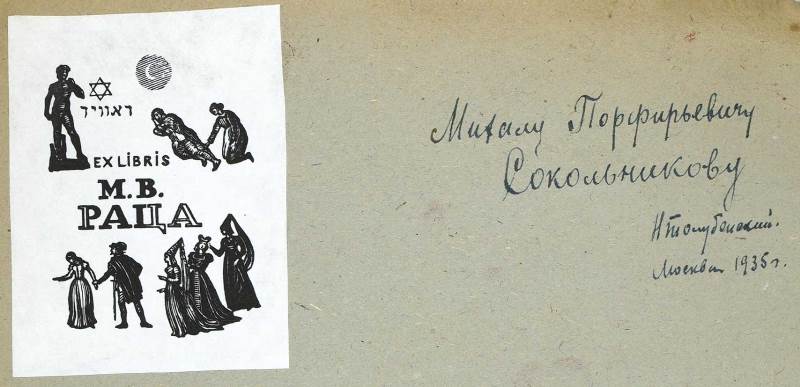 דאוויד
EX LIBRIS
М.В.
РАЦА
Михалу Порфирьевичу
Сокольникову
Москва 1935 г.